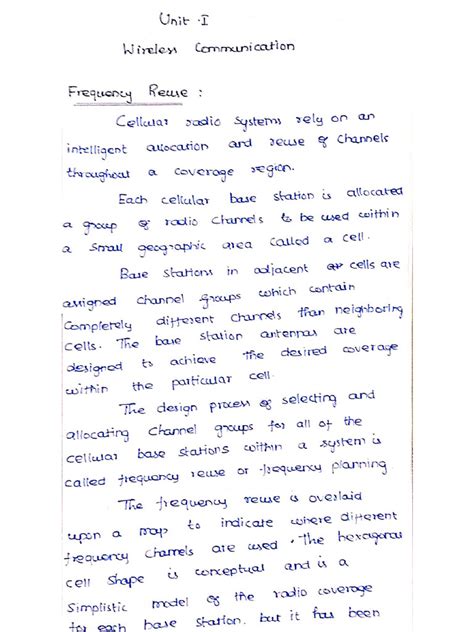 Unit - I
Wireless Communication
Frequency Reuse :
Cellular radio systems rely on an
intelligent allocation and reuse of channels
throughout a coverage region.
Each cellular base station is allocated
a group of radio channels to be used within
a small geographic area called a cell.
Base stations in adjacent cells are
assigned channel groups which contain
completely different channels than neighboring
cells. The base station antennas are
designed to achieve the desired coverage
within the particular cell.
The design process of selecting and
allocating channel groups for all of the
cellular base stations within a system is
called frequency reuse or frequency planning.
The frequency reuse is overlaid
upon a map to indicate where different
frequency channels are used. The hexagonal
cell shape is conceptual and is a
simplistic model of the radio coverage
for each base station, but it has been